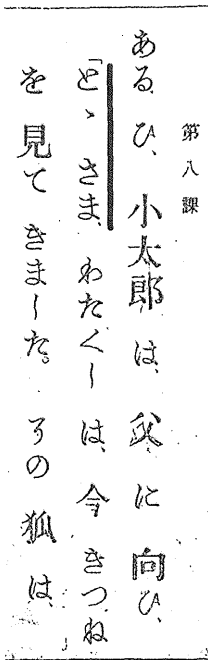 第八課
ある ひ、小太郎 は、父 に 向ひ、
「とゝ さま、わたくし は、今 きつね
を 見て きました。その 狐 は、